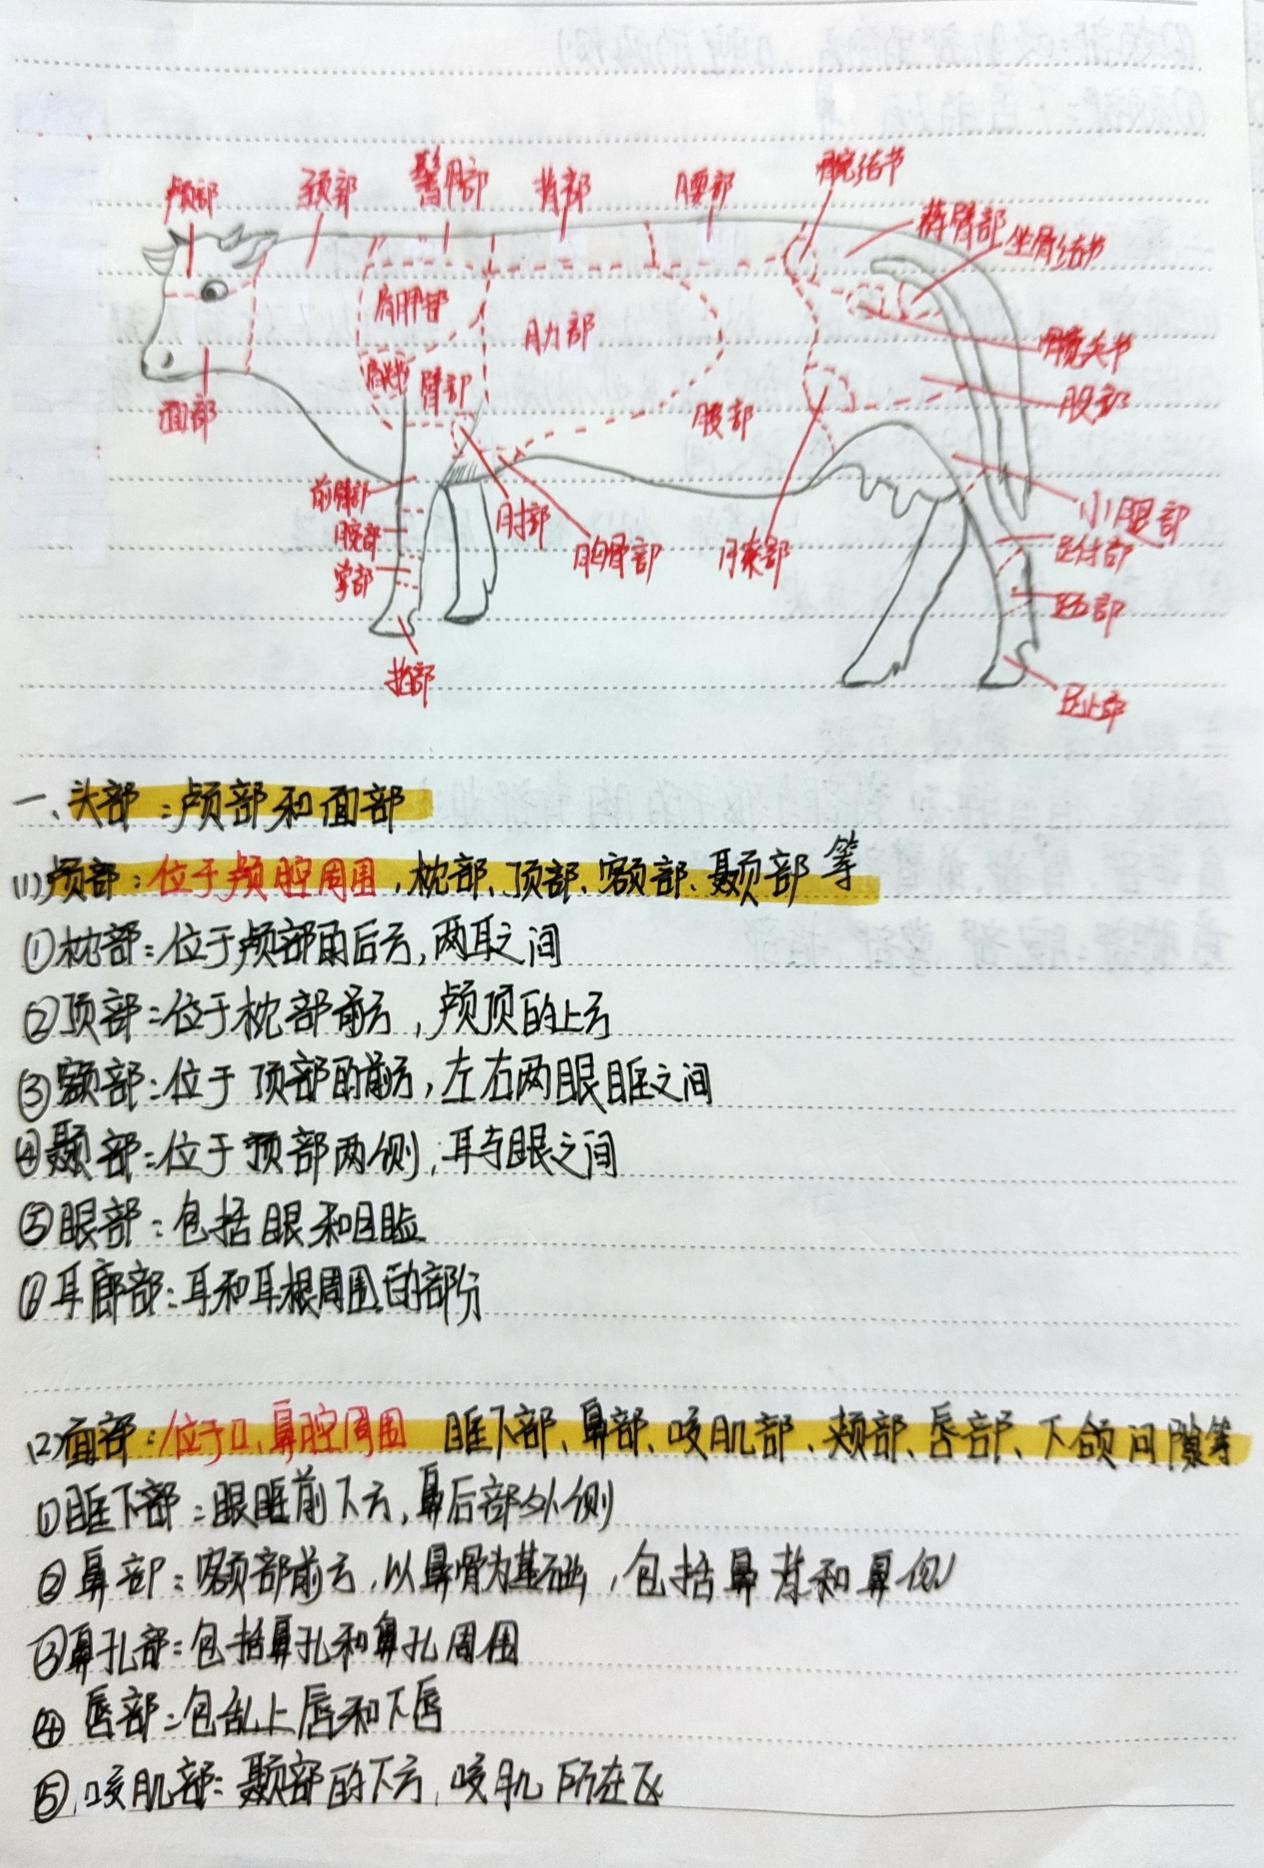 颅部 颈部 鬐甲部 背部 腰部 髋结节
荐臀部 坐骨结节
肩胛部 肋部 髋关节
肩关节 臂部 股部
面部 腹部
前臂部 肘部 胸骨部 膝部 小腿部
腕部 跗部
掌部 跖部
指部 趾部
一、头部:颅部和面部
(1)颅部:位于颅腔周围,枕部、顶部、额部、颞部等
①枕部:位于颅部后方,两耳之间
②顶部:位于枕部前方,颅顶的上方
③额部:位于顶部的前方,左右两眼眶之间
④颞部:位于顶部两侧,耳与眼之间
⑤眼部:包括眼和眼睑
⑥耳廓部:耳和耳根周围的部分
(2)面部:位于口、鼻腔周围 眶下部、鼻部、咬肌部、颊部、唇部、下颌间隙等
①眶下部:眼眶前下方,鼻后部外侧
②鼻部:额部前方,以鼻骨为基础,包括鼻背和鼻侧
③鼻孔部:包括鼻孔和鼻孔周围
④唇部:包括上唇和下唇
⑤咬肌部:颞部的下方,咬肌所在区